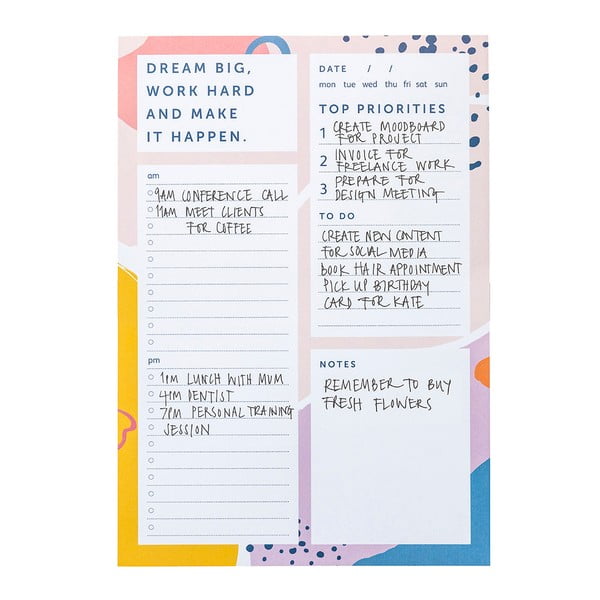 DREAM BIG,
WORK HARD
AND MAKE
IT HAPPEN.
am
9AM CONFERENCE CALL
11AM MEET CLIENTS
FOR COFFEE
pm
1PM LUNCH WITH MUM
4PM DENTIST
7PM PERSONAL TRAINING
SESSION
DATE / /
mon tue wed thu fri sat sun
TOP PRIORITIES
1 CREATE MOODBOARD
FOR PROJECT
2 INVOICE FOR
FREELANCE WORK
3 PREPARE FOR
DESIGN MEETING
TO DO
CREATE NEW CONTENT
FOR SOCIAL MEDIA
BOOK HAIR APPOINTMENT
PICK UP BIRTHDAY
CARD FOR KATE
NOTES
REMEMBER TO BUY
FRESH FLOWERS